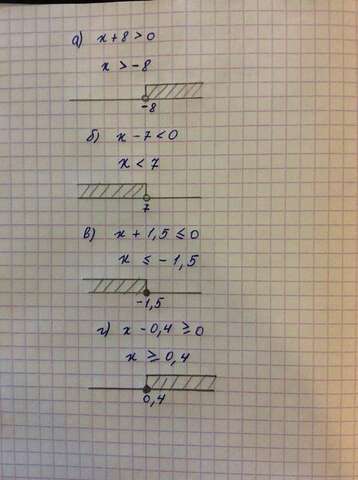 а) x + 8 > 0
x > -8
-8
б) x - 7 < 0
x < 7
7
в) x + 1,5 ≤ 0
x ≤ -1,5
-1,5
г) x - 0,4 ≥ 0
x ≥ 0,4
0,4